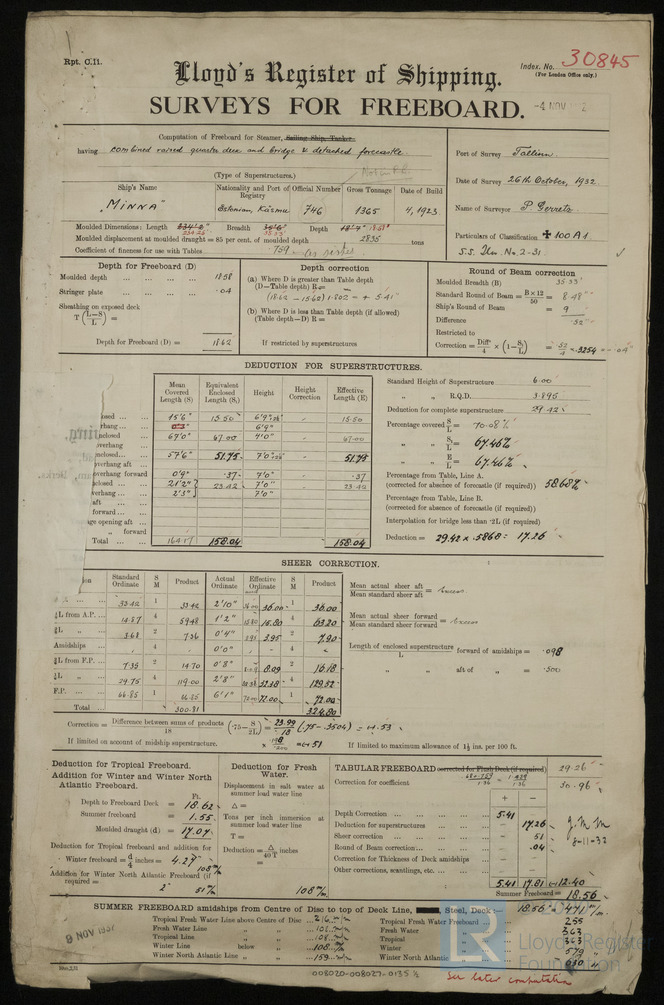 Rpt. C.11.
Index. No. 30845
(For London Office only.)
Lloyd's Register of Shipping.
SURVEYS FOR FREEBOARD.
-4 NOV
Computation of Freeboard for Steamer, Sailing Ship, Tanker
having combined raised quarter deck and bridge & detached forecastle.
(Type of Superstructures.)
Port of Survey Tallinn
Date of Survey 26th October, 1932.
Name of Surveyor P Gerretz
Particulars of Classification ✠ 100 A1
S.S. No. 2-31
Ship's Name
Nationality and Port of Registry
Official Number
Gross Tonnage
Date of Build
"MINNA"
Estonian, Käsmu
746
1365
4, 1923
Moulded Dimensions: Length 234.26 Breadth 35.33 Depth 18.58
Moulded displacement at moulded draught = 85 per cent. of moulded depth 2835 tons
Coefficient of fineness for use with Tables .759
Depth for Freeboard (D)
Moulded depth 18.58
Stringer plate .04
Sheathing on exposed deck
T (L-S / L) =
Depth for Freeboard (D) = 18.62
Depth correction
(a) Where D is greater than Table depth
(D—Table depth) R =
(18.62 - 15.62) 1.802 = + 5.41
(b) Where D is less than Table depth (if allowed)
(Table depth—D) R =
If restricted by superstructures
Round of Beam correction
Moulded Breadth (B) 35.33
Standard Round of Beam = B×12 / 50 = 8.48"
Ship's Round of Beam = 9
Difference .52
Restricted to
Correction = Diff / 4 × (1 - S₁ / L) = .52 / 4 × .3254 = -.04
DEDUCTION FOR SUPERSTRUCTURES.
Mean Covered Length (S)
Equivalent Enclosed Length (S₁)
Height
Height Correction
Effective Length (E)
closed 15'6" 15.50 6'9" 15.50
rhang 6'9"
nclosed 67'0" 67.00 7'0" 67.00
overhang
nclosed 57'6" 51.75 7'0" 51.75
verhang aft
overhang forward 0'9" .37 7'0" .37
nclosed 21'2" 23.42 7'0" 23.42
verhang 2'3" 7'0"
aft
forward
age opening aft
" forward
Total 164.17 158.04 158.04
Standard Height of Superstructure 6.00
" " R.Q.D. 3.895
Deduction for complete superstructure 29.42
Percentage covered S / L = 70.08%
" " S₁ / L = 67.46%
" " E / L = 67.46%
Percentage from Table, Line A.
(corrected for absence of forecastle (if required)) 58.68%
Percentage from Table, Line B.
(corrected for absence of forecastle (if required))
Interpolation for bridge less than .2L (if required)
Deduction = 29.42 × .5868 = 17.26
SHEER CORRECTION.
ion
Standard Ordinate
S M
Product
Actual Ordinate
Effective Ordinate
S M
Product
33.42 1 33.42 2'10" 36.00 1 36.00
⅙L from A.P. 14.87 4 59.48 1'2" 15.80 4 63.20
⅓L " 3.68 2 7.36 0'4" 3.95 2 7.90
Amidships 4 0'0" 4
⅓L from F.P. 7.35 2 14.70 0'8" 8.09 2 16.18
⅙L " 29.75 4 119.00 2'8" 32.38 4 129.52
F.P. 66.85 1 66.85 6'1" 72.00 1 72.00
Total 300.81 324.80
Mean actual sheer aft / Mean standard sheer aft = Excess
Mean actual sheer forward / Mean standard sheer forward = Excess
Length of enclosed superstructure / L forward of amidships = .098
" " aft of " = .500
Correction = Difference between sums of products / 18 (.75 - S / 2L) = 23.99 / 18 (.75 - .3504) = -.53
If limited on account of midship superstructure.
= -.51
If limited to maximum allowance of 1½ ins. per 100 ft.
Deduction for Tropical Freeboard.
Addition for Winter and Winter North Atlantic Freeboard.
Ft.
Depth to Freeboard Deck = 18.62
Summer freeboard = 1.55
Moulded draught (d) = 17.07
Deduction for Tropical freeboard and addition for
Winter freeboard = d / 4 inches = 4.27"
108 m/m
Addition for Winter North Atlantic Freeboard (if required) =
2" 51 m/m
Deduction for Fresh Water.
Displacement in salt water at summer load water line
Δ =
Tons per inch immersion at summer load water line
T =
Deduction = Δ / 40 T inches
=
108 m/m
TABULAR FREEBOARD corrected for Flush Deck (if required) 29.26
Correction for coefficient 30.96
+ −
Depth Correction 5.41
Deduction for superstructures 17.26
Sheer correction .51
Round of Beam correction .04
Correction for Thickness of Deck amidships
Other corrections, scantlings, etc.
5.41 17.81 -12.40
Summer Freeboard = 18.56
J.M.M
8-11-32
SUMMER FREEBOARD amidships from Centre of Disc to top of Deck Line, Steel, Deck: 18.56" = 471 m/m
Tropical Fresh Water Line above Centre of Disc 216 m/m
Fresh Water Line " " 108 m/m
Tropical Line " " 108 m/m
Winter Line below " 108 m/m
Winter North Atlantic Line " " 159 m/m
Tropical Fresh Water Freeboard 255
Fresh Water " 363
Tropical " 363
Winter " 579
Winter North Atlantic " 630
9 NOV 1932
008020-008027-0135 ½
See later computation
LR
Lloyd's Register
Foundation